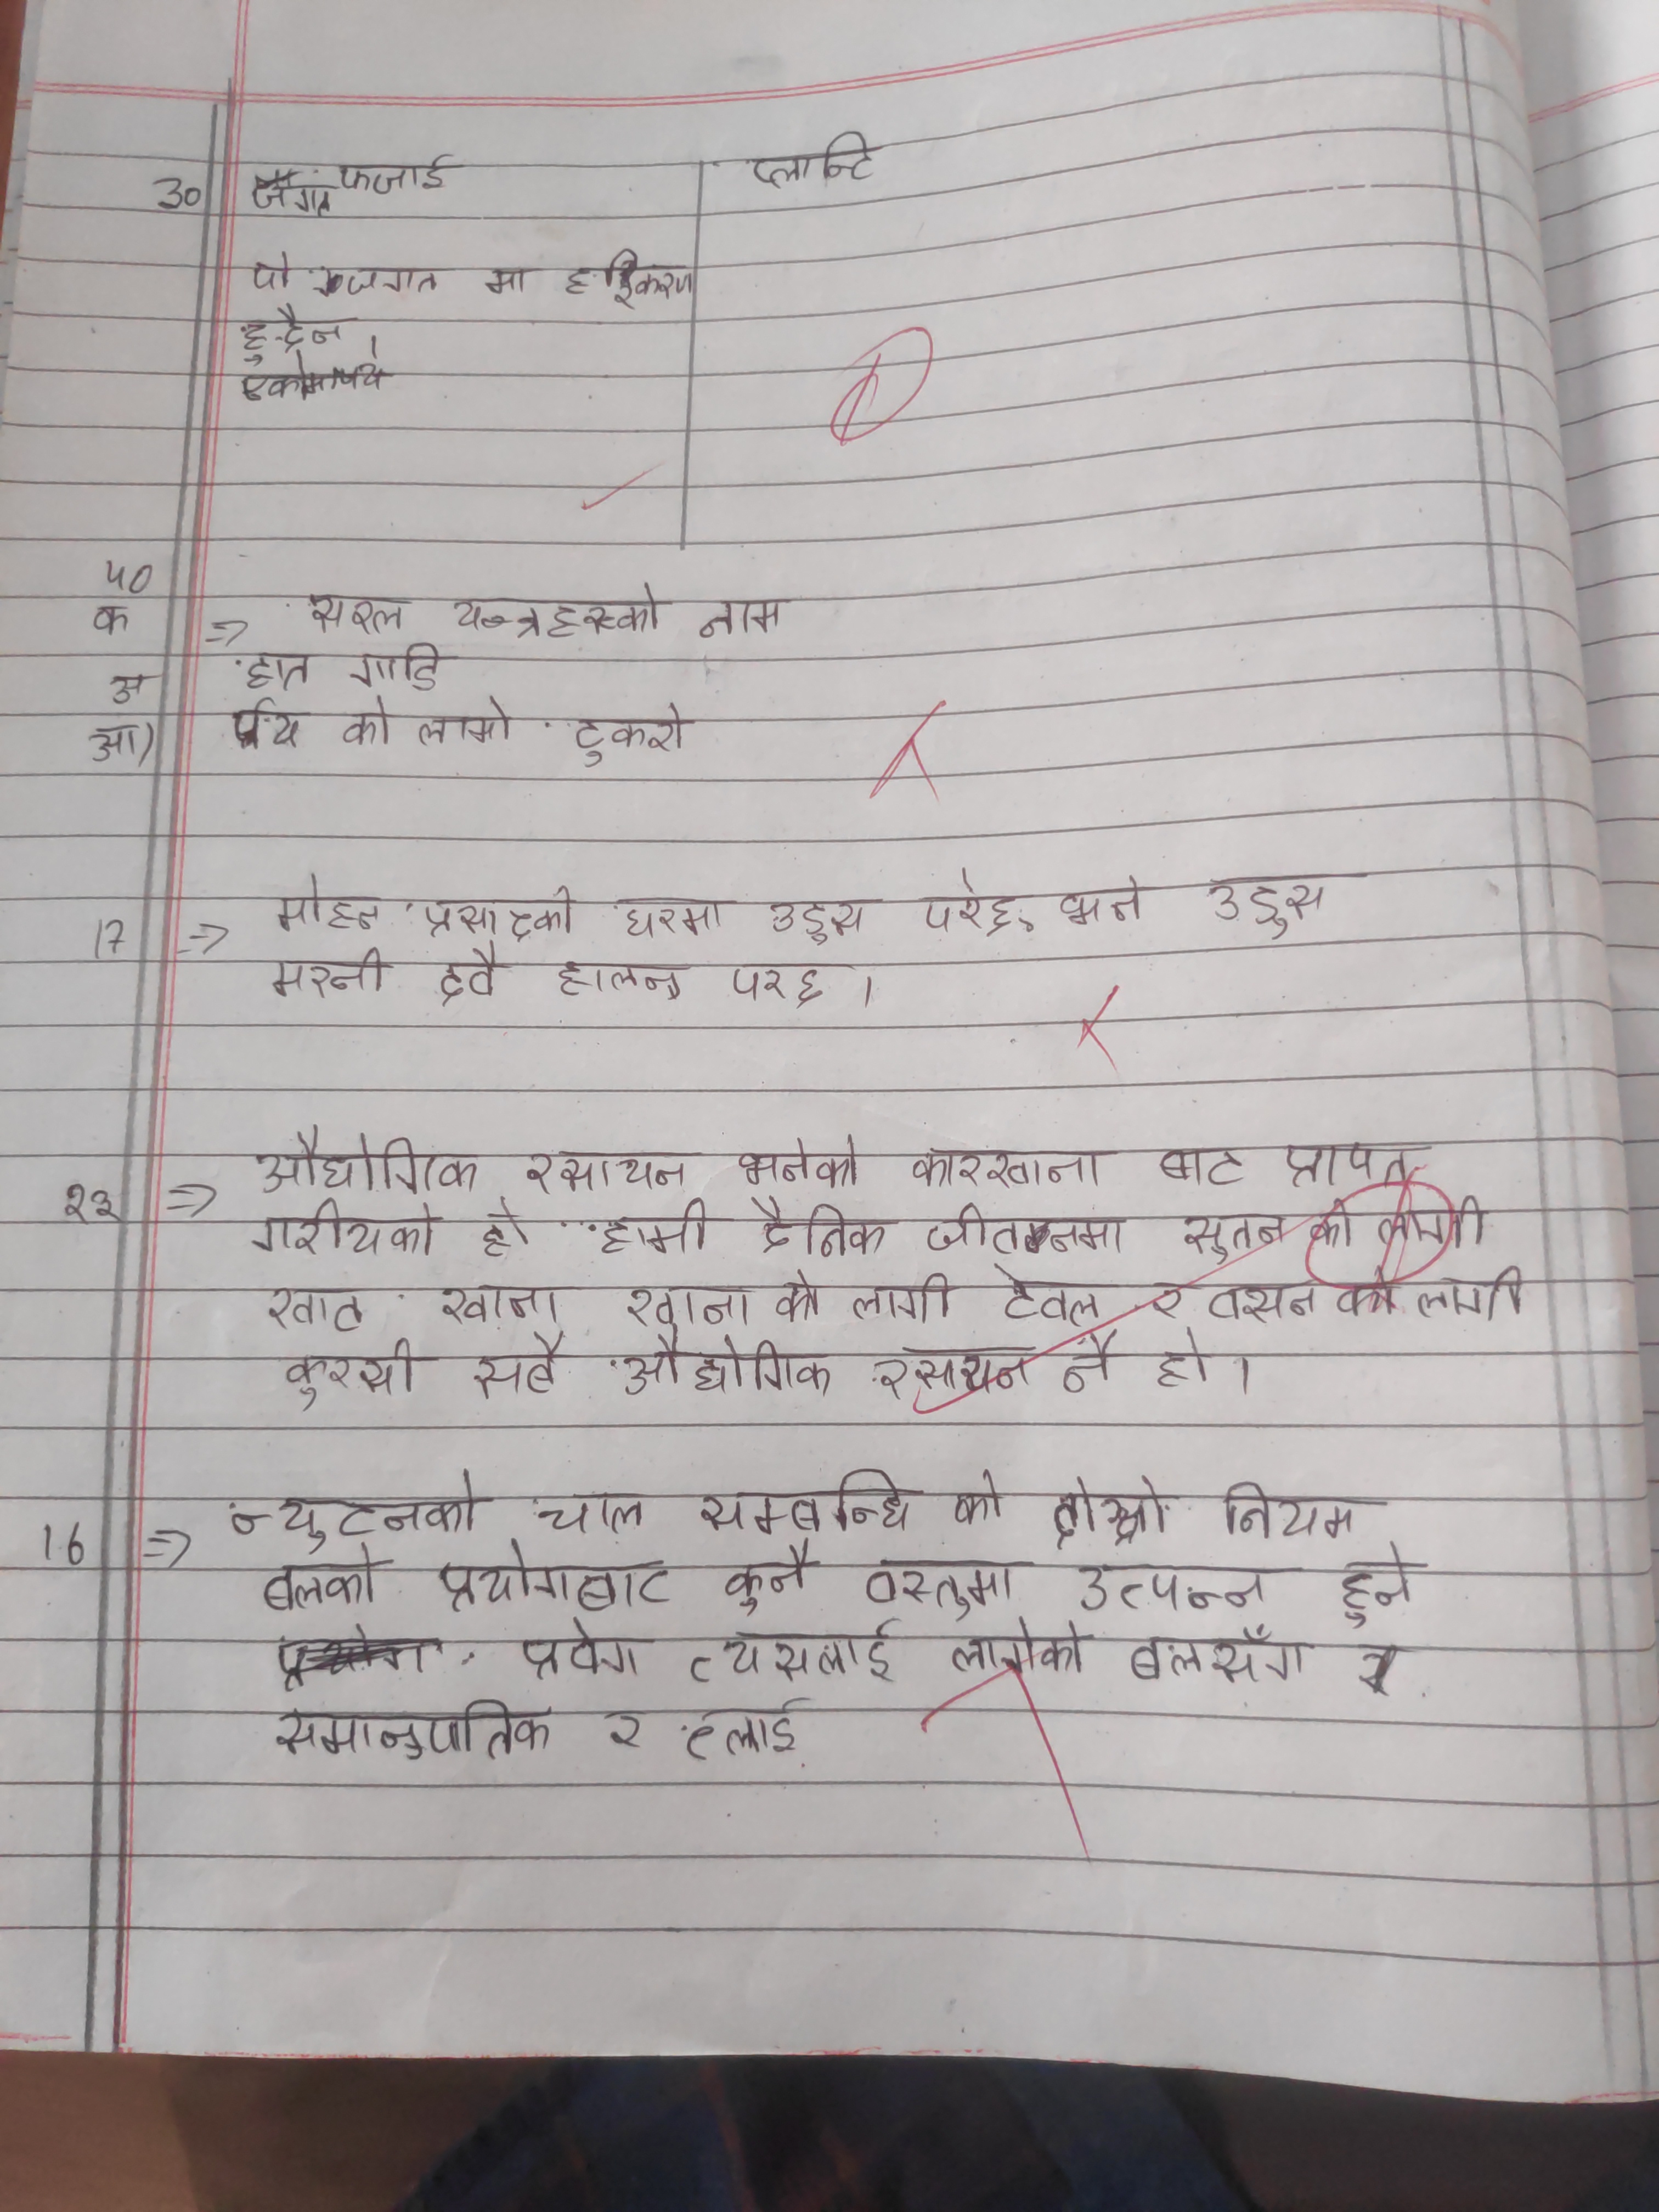 30 फजाई प्लान्टि
यो जगत मा हरिकरण
हुदैन ।
४०
क ⇒ सरल यन्त्रहरुको नाम
अ हात गाडि
आ) को लामो टुकरो
17 ⇒ मोहन प्रसादको घरमा उडुस परेछ भने उडुस
मरनी दवै हालनु परछ ।
२३ ⇒ औधोगिक रसायन भनेको कारखाना बाट प्रापत
गरीयको हो हामी दैनिक जीवनमा सुतन को लागी
खाट खाना खाना को लागी टेवल र वसन को लागी
कुरसी सबै औधोगिक रसायन नै हो ।
16 ⇒ न्युटनको चाल सम्बन्धि को दोस्रो नियम
बलको प्रयोगबाट कुनै वस्तुमा उत्पन्न हुने
प्रवेग त्यसलाई लागेको बलसँग
समानुपातिक र